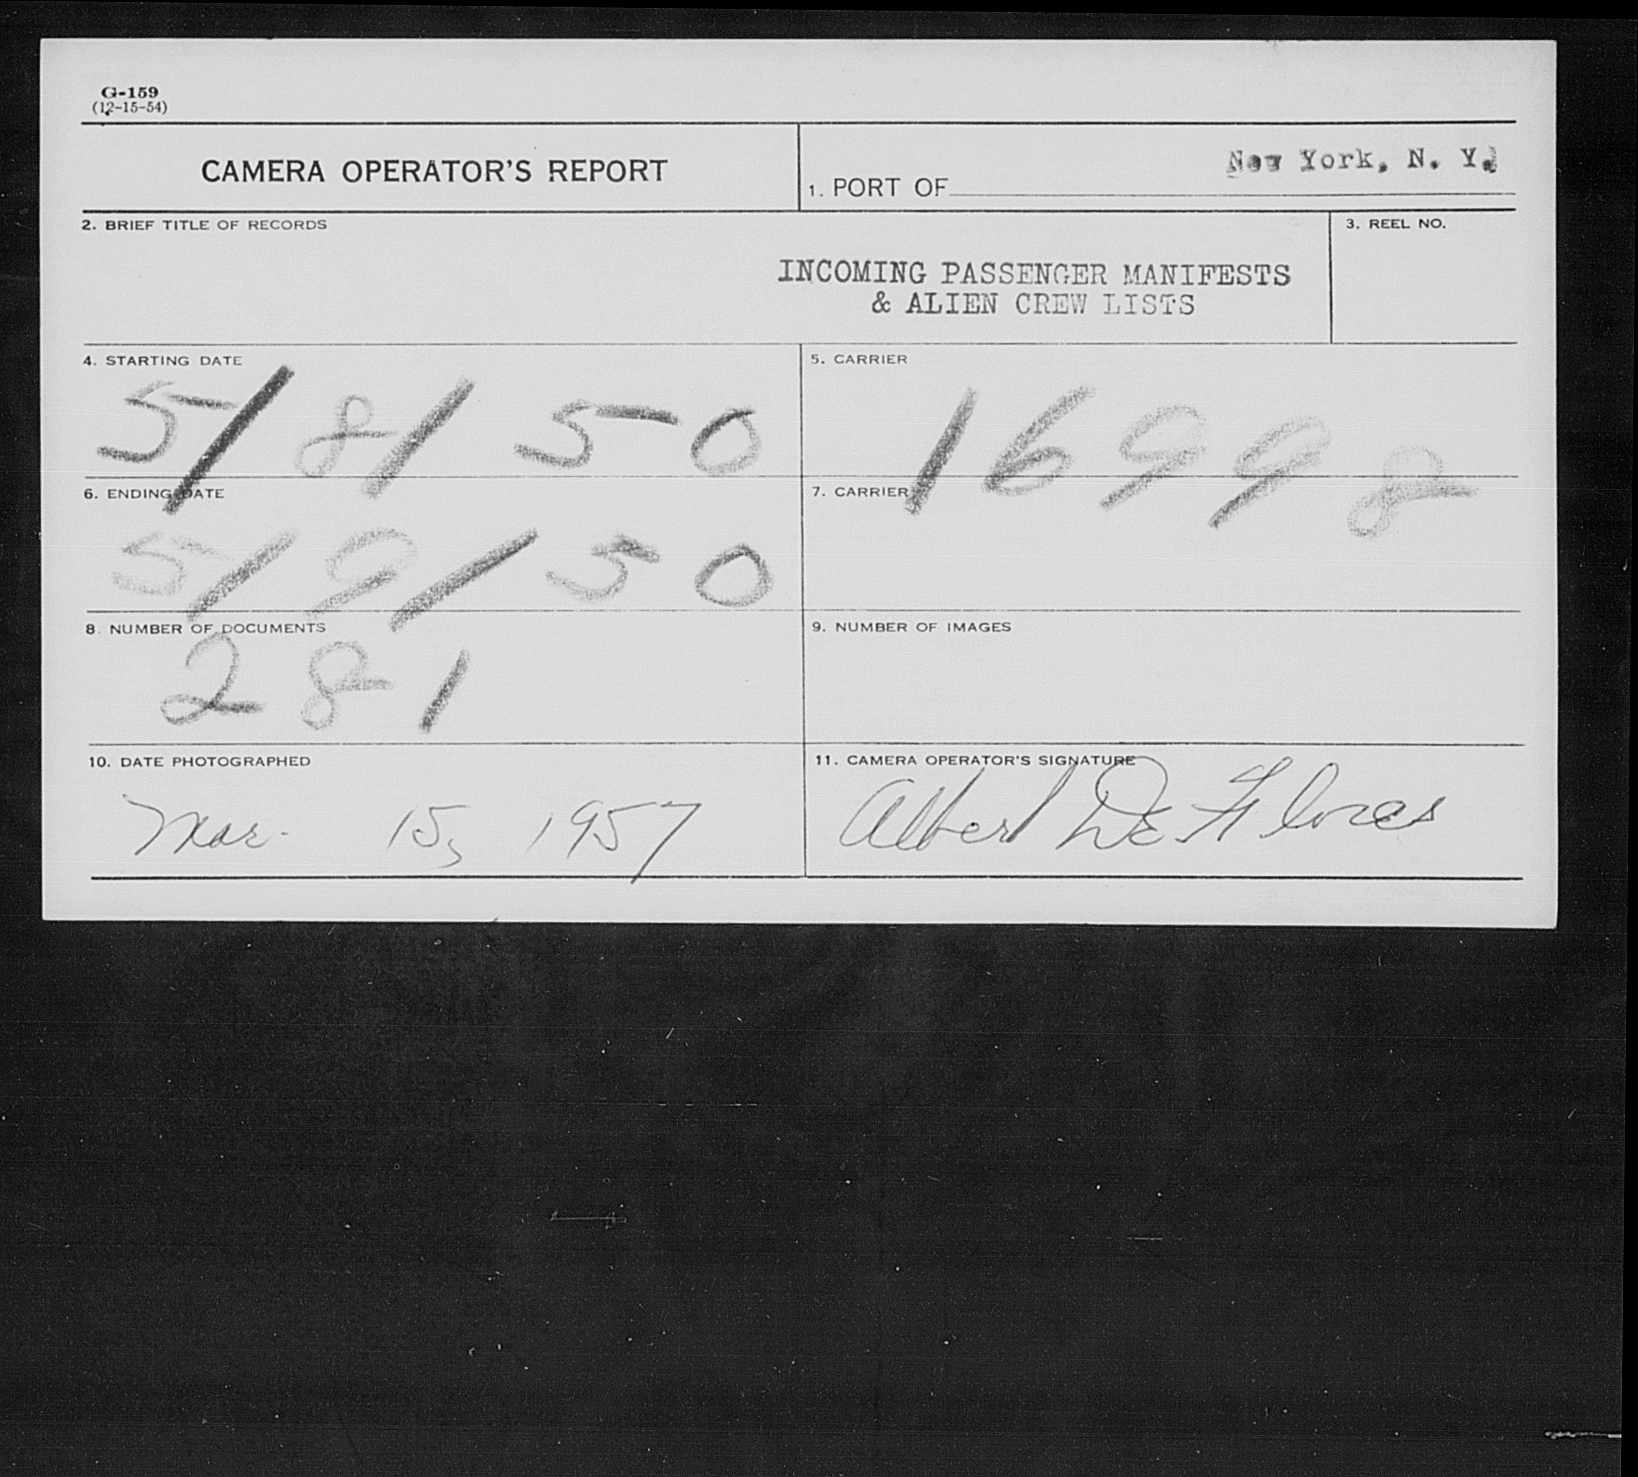 G-159
(12-15-54)
CAMERA OPERATOR'S REPORT
1. PORT OF New York, N. Y.
2. BRIEF TITLE OF RECORDS
3. REEL NO.
INCOMING PASSENGER MANIFESTS
& ALIEN CREW LISTS
4. STARTING DATE
5. CARRIER
5/8/50
16998
6. ENDING DATE
7. CARRIER
5/9/50
8. NUMBER OF DOCUMENTS
9. NUMBER OF IMAGES
281
10. DATE PHOTOGRAPHED
11. CAMERA OPERATOR'S SIGNATURE
Mar. 15, 1957
Albert De Flores